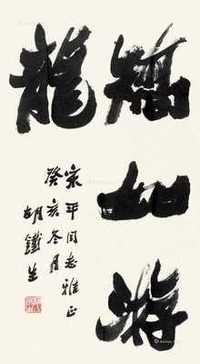 矯如游
龍
平同志雅正
癸亥冬月
胡鐵生